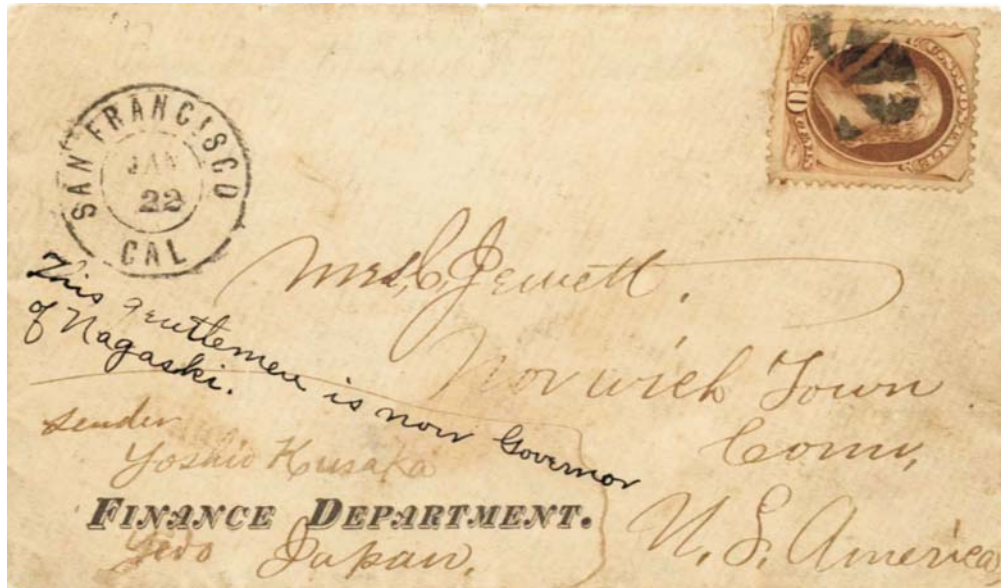 SAN FRANCISCO
JAN
22
CAL
10
Mrs. C. Jewett.
Norwich Town
Conn,
U. S. America
This gentlemen is now Governor
of Nagaski.
sender
Yoshio Kusaka
FINANCE DEPARTMENT.
Yedo Japan,